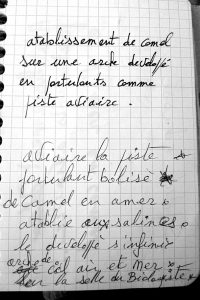 atablissement de camel
sur une arche develofé
en portulants comme
piste aviaire.
aviaire la piste
portulant bolisé
de Camel en amer
atablie aux salines
le develoffe s'infinir
arche de
col air et Mer
sur la selle du Biologiste